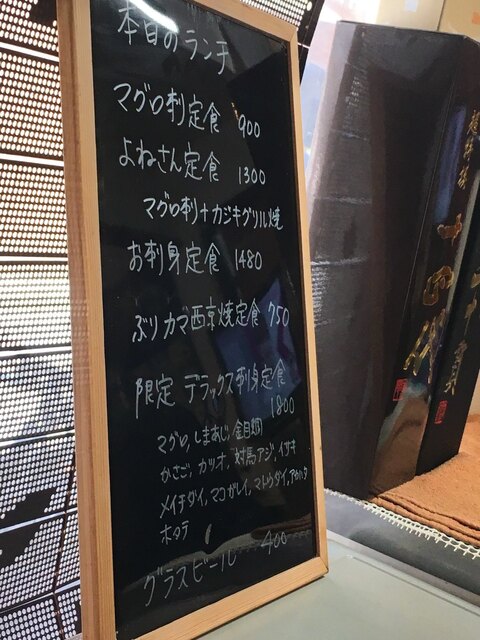 本日のランチ
マグロ刺定食 900
よねさん定食 1300
マグロ刺+カジキグリル焼
お刺身定食 1480
ぶりカマ西京焼定食 750
限定 デラックス刺身定食
1800
マグロ, しまあじ, 金目鯛
かさご, カツオ, 対馬アジ, イサキ
メイチダイ, マコガレイ, マトウダイ, アカハタ
ホタテ
グラスビール 400
十四代